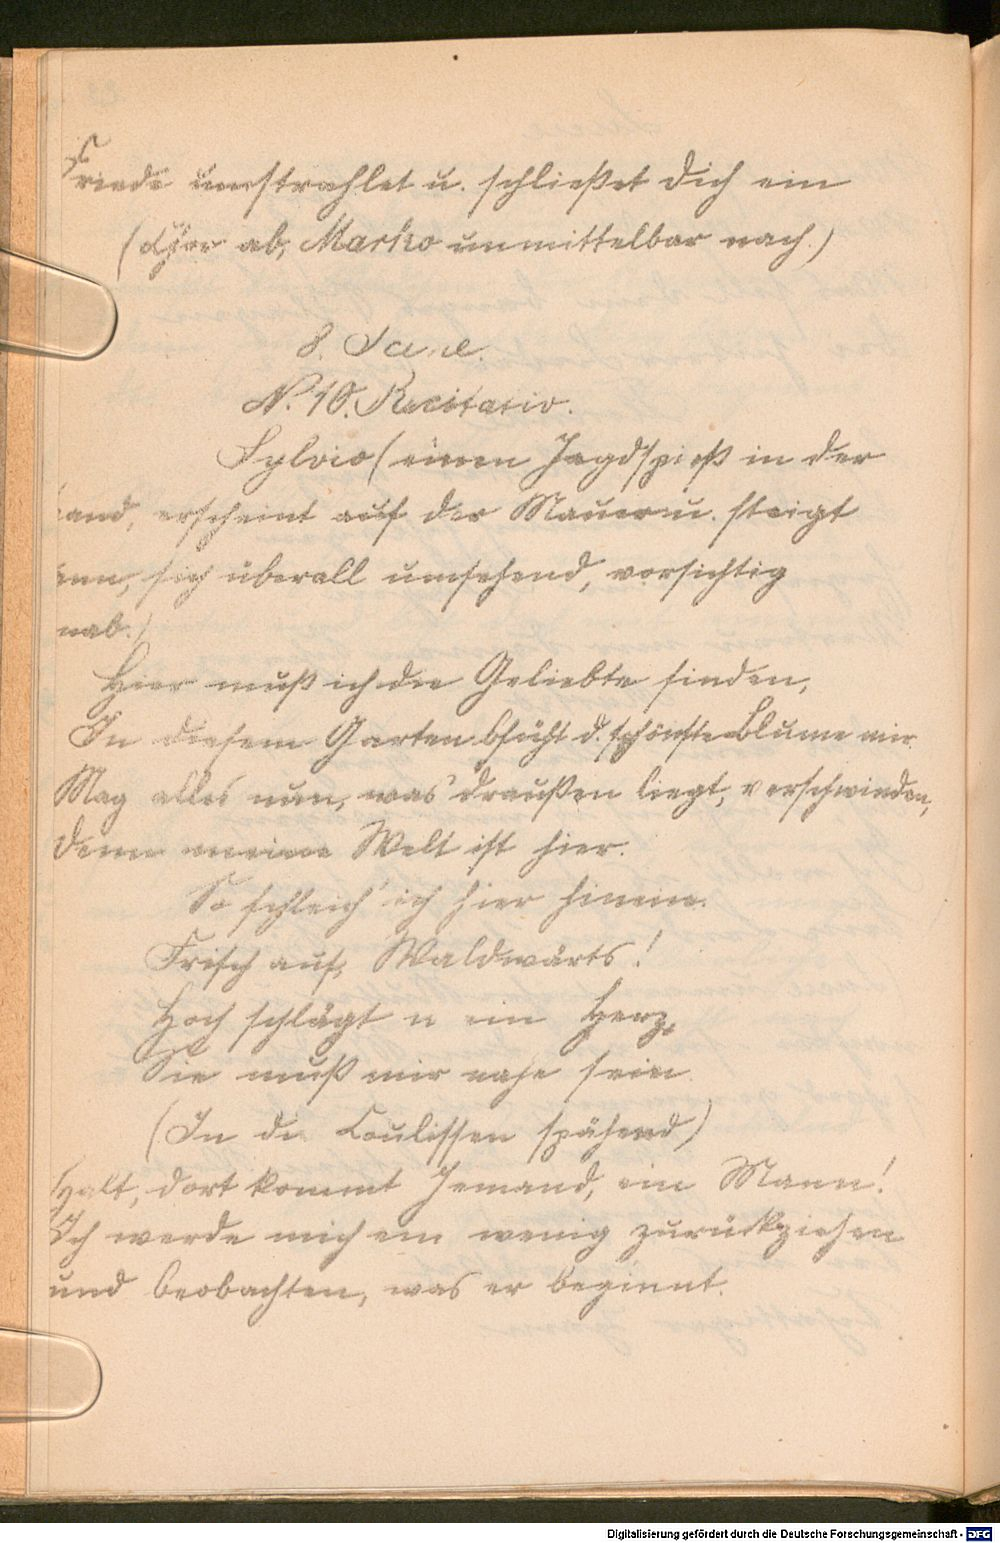 Friede umstrahlet u. schließet dich ein
(Chor ab, Marko unmittelbar nach.)
8. Scene.
N. 10. Recitativ.
Sylvio (einen Jagdspieß in der
Hand, erscheint auf der Mauer u. steigt
dann, sich überall umsehend, vorsichtig
nab.)
Hier muß ich die Geliebte finden,
In diesem Garten blüht d. schönste Blume mir.
Mag alles nun, was draußen liegt, verschwinden,
Denn meine Welt ist hier.
So schleich' ich hier hinein.
Frisch auf, Waldwärts!
Hoch schlägt m ein Herz,
Sie muß mir nahe sein.
(In die Coulissen spähend)
Halt, dort kommt Jemand, ein Mann!
Ich werde mich ein wenig zurückziehen
und beobachten, was er beginnt.
Digitalisierung gefördert durch die Deutsche Forschungsgemeinschaft - DFG